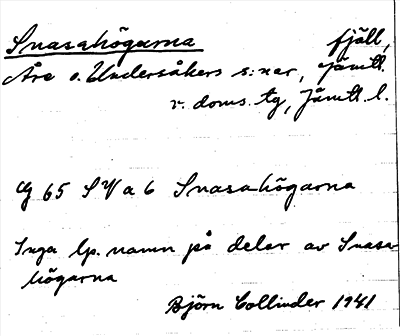 Snasahögarna fjäll,
Åre o. Undersåkers s:nar, Jämtl.
v. doms. tg, Jämtl. l.
G 65 SV a 6 Snasahögarna
Inga lp. namn på delar av Snasa
högarna
Björn Collinder 1941